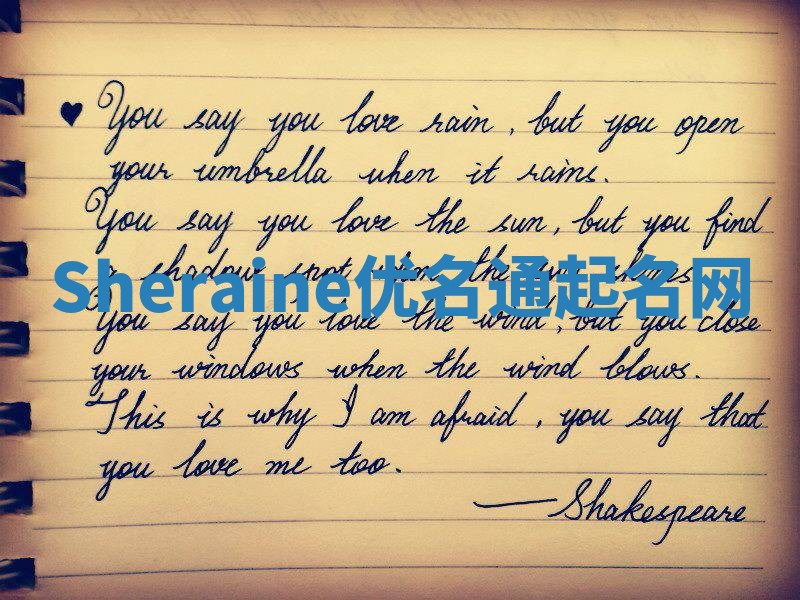 You say you love rain, but you open
your umbrella when it rains.
You say you love the sun, but you find
a shadow spot when the sun shines.
Sheraine优名通起名网
You say you love the wind, but you close
your windows when the wind blows.
This is why I am afraid, you say that
you love me too.
—Shakespeare